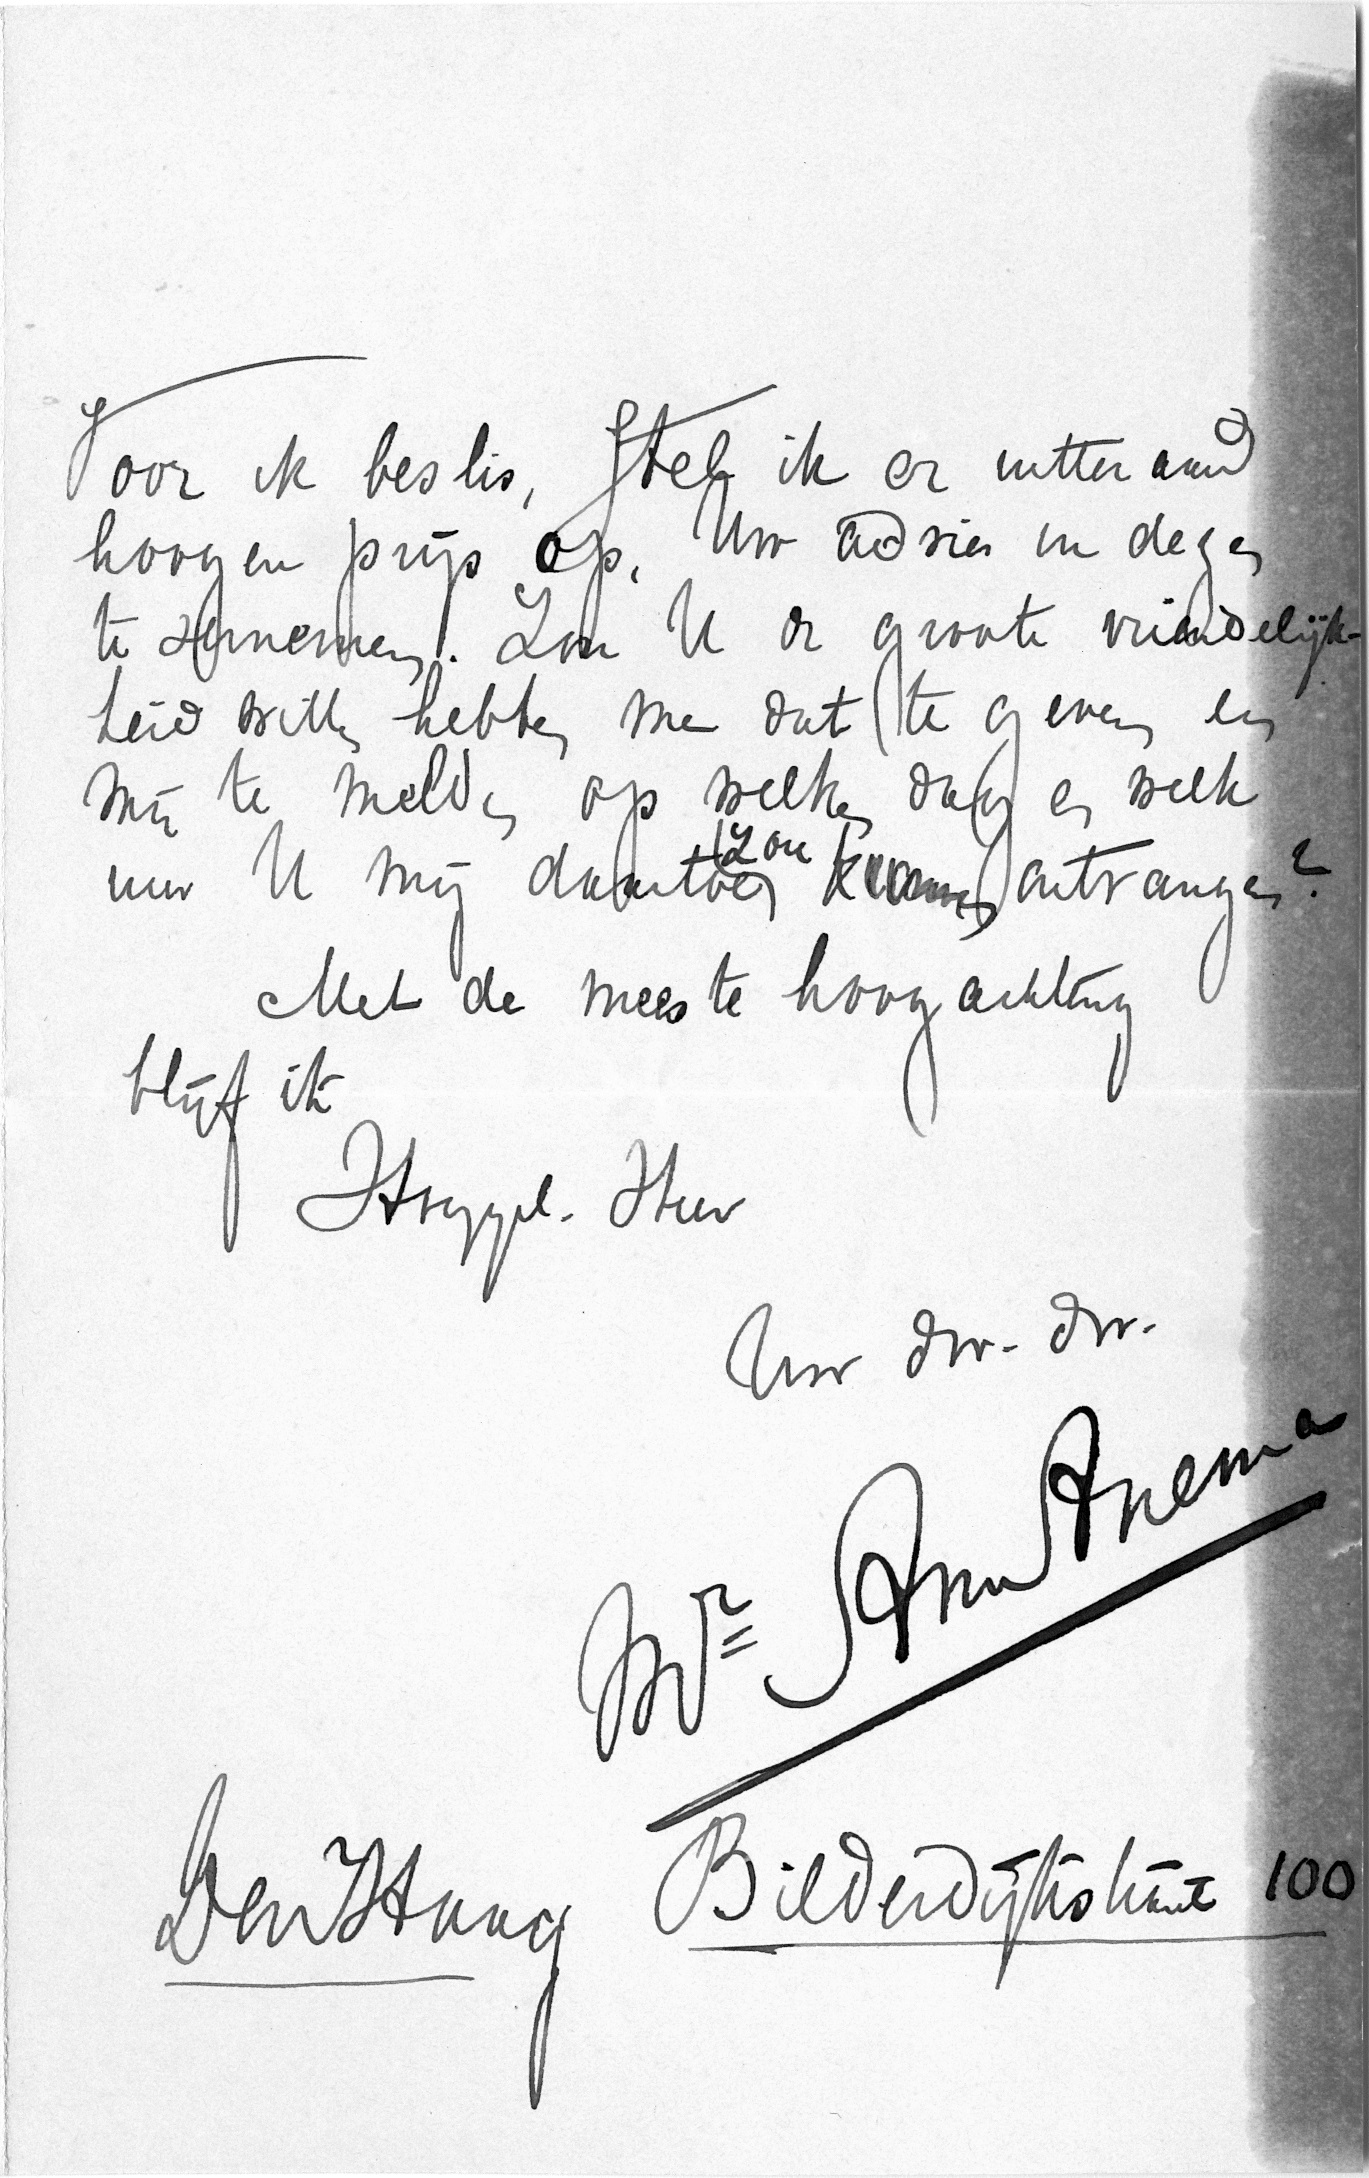 Voor ik beslis, stel ik er uiteraard
hoogen prijs op, Uw advies in dezen
te vernemen. Zou U de groote vriendelijk-
heid willen hebben me dat te geven en
mij te melden op welken dag en welk
uur U mij daartoe zou kunnen ontvangen?
Met de meeste hoogachting
blijf ik
Hooggel. Heer
Uw dw. dr.
Mr Anne Anema
Den Haag Bilderdijkstraat 100